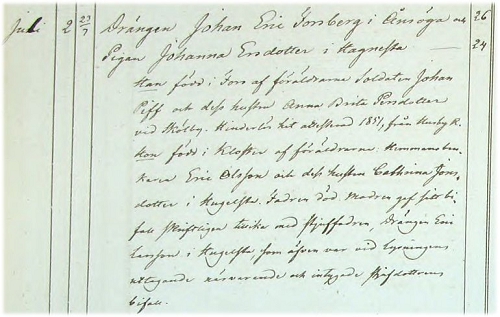 Juli 2 23/7 Drängen Johan Eric Forsberg i Ånsöga och 26
Pigan Johanna Ersdotter i Hagnesta — 24
Han född i Fors af föräldrarne Soldaten Johan
Piff och dess hustru Anna Brita Persdotter
vid Mölby. Hinderlös hit attesterad 1851, från Husby R.
Hon född i Kloster af föräldrarne Hemmansbru-
karen Eric Olsson och dess hustru Cathrina Jons-
dotter i Hugelsta. Fadren död Modren gef sitt bi-
fall skriftligen tillika med styffadren, Drängen Eric
Larsson i Hugelsta som äfven var vid lysningens
uttagande närvarande och intygade styfdottrens
bifall.